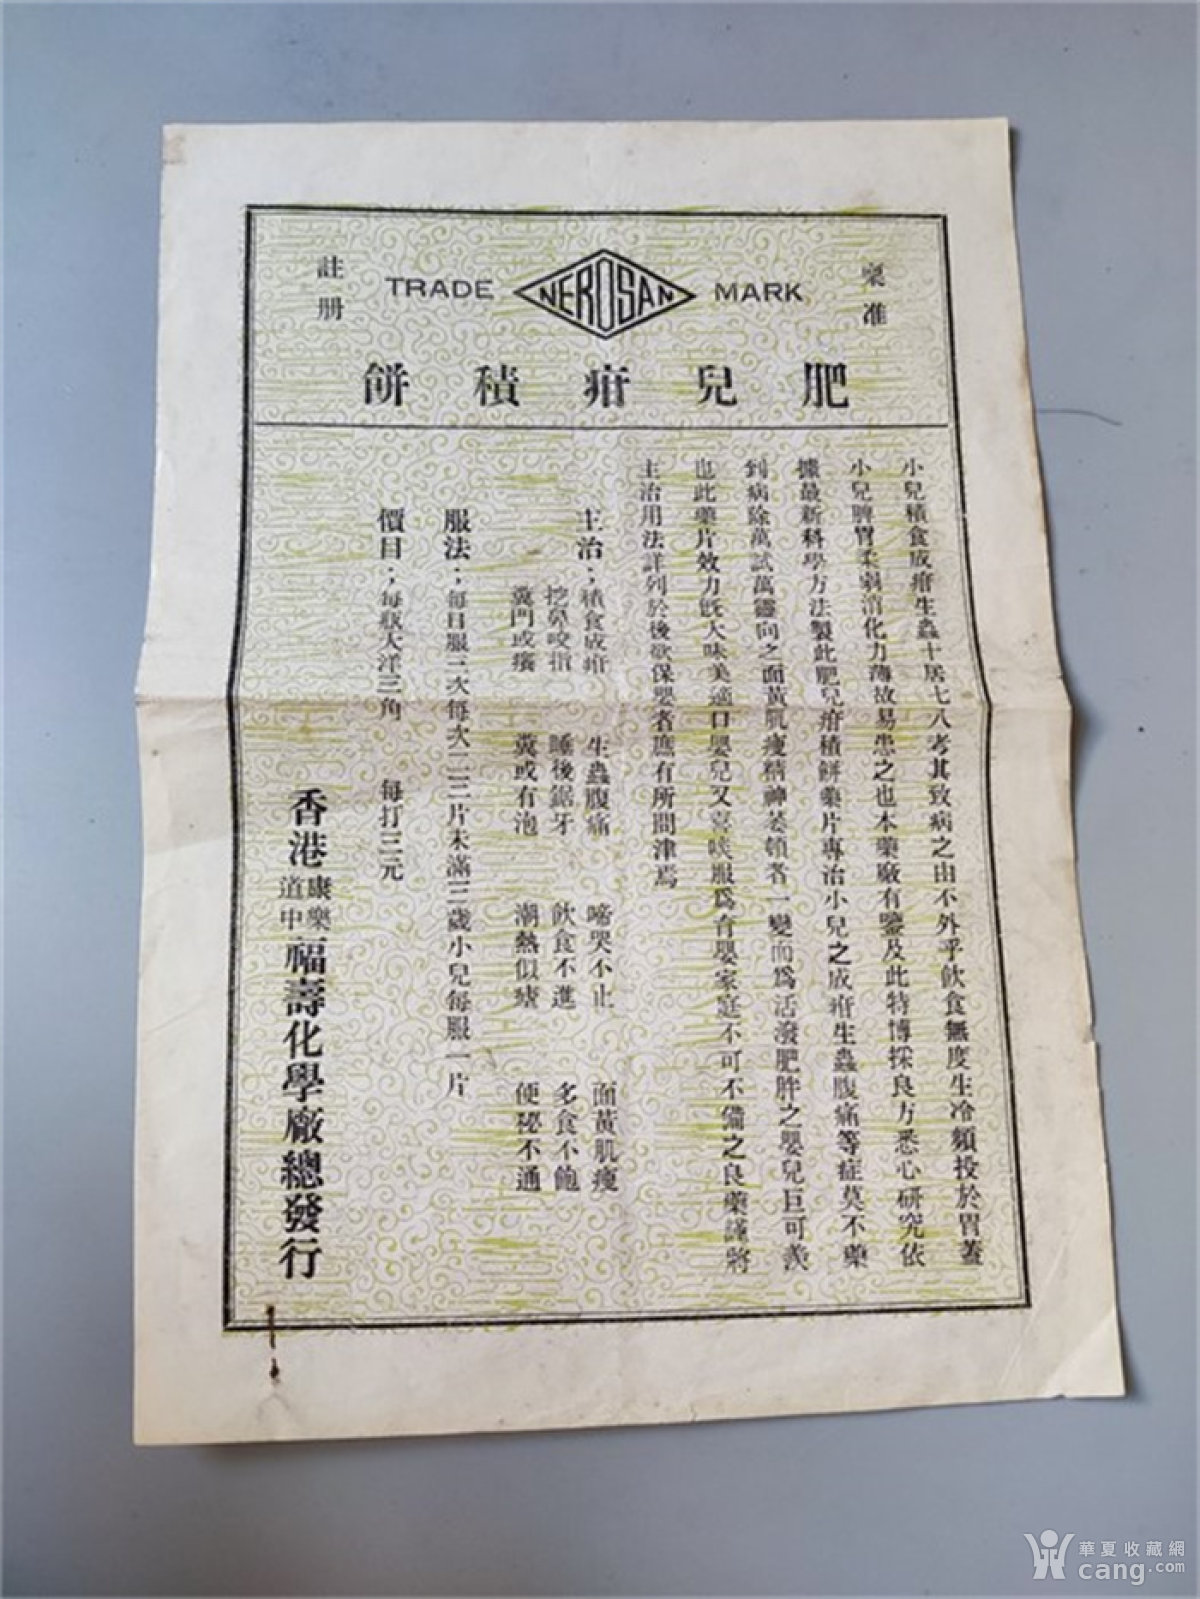 稟准
TRADE NEROSAN MARK
註册
肥兒疳積餅
小兒積食成疳生蟲十居七八考其致病之由不外乎飲食無度生冷頻投於胃蓋
小兒脾胃柔弱消化力薄故易患之也本藥廠有鑒及此特博採良方悉心研究依
據最新科學方法製此肥兒疳積餅藥片專治小兒之成疳生蟲腹痛等症莫不藥
到病除萬試萬靈向之面黃肌瘦精神萎頓者一變而爲活潑肥胖之嬰兒巨可羨
也此藥片效力旣大味美適口嬰兒又喜啖服爲育嬰家庭不可不備之良藥謹將
主治用法詳列於後欲保嬰者庶有所問津焉
主治：積食成疳 生蟲腹痛 啼哭不止 面黃肌瘦
挖鼻咬指 睡後鋸牙 飲食不進 多食不飽
糞門或癢 糞或有泡 潮熱似瘧 便秘不通
服法：每日服三次每次二三片未滿三歲小兒每服一片
價目：每瓶大洋三角 每打三元
香港康樂道中福壽化學廠總發行
華夏收藏網
cang.com